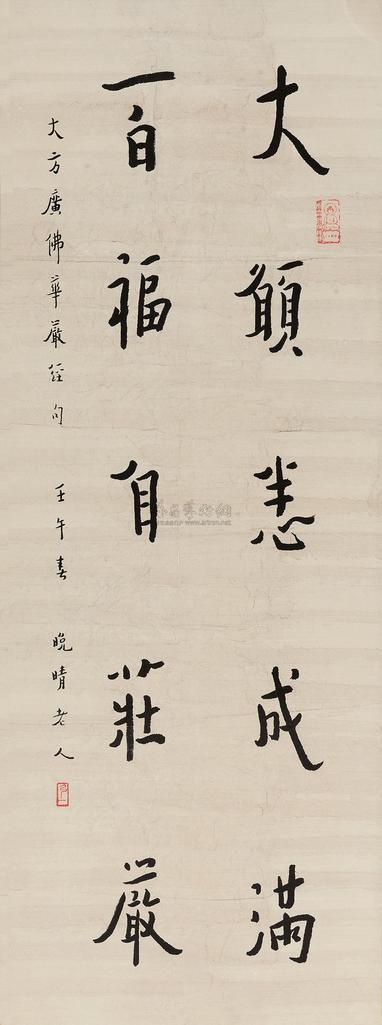 大願悉成滿
百福自莊嚴
大方廣佛華嚴經句 壬午春 晚晴老人